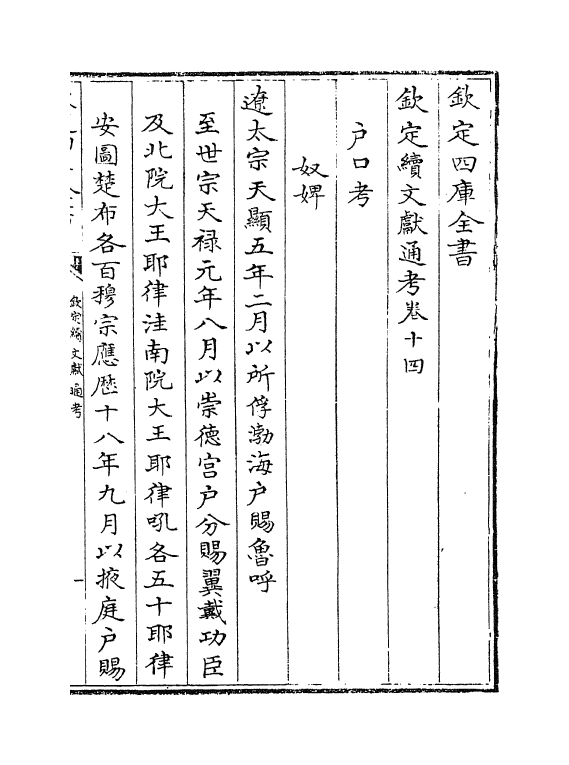 欽定四庫全書
欽定續文獻通考卷十四
户口考
奴婢
遼太宗天顯五年二月以所俘渤海户賜魯呼
至世宗天禄元年八月以崇徳宫户分賜翼戴功臣
及北院大王耶律洼南院大王耶律吼各五十耶律
安圖楚布各百穆宗應厯十八年九月以掖庭户賜
欽定續文獻通考
一